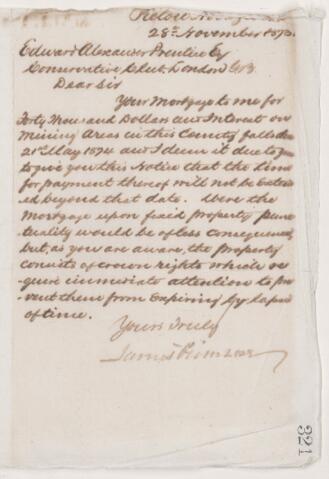 Pictou
28th November 1873.
Edward Alexander Prentice Esq
Conservative Club, London G.B.
Dear Sir
Your Mortgage to me for
Forty Thousand Dollars and Interest on
Mining Areas in this County falls due
21st May 1874 and I deem it due to you
to give you this Notice that the time
for payment thereof will not be extend
ed beyond that date. Were the
Mortgage upon fixed property punc
tuality would be of less consequence
but, as you are aware, the property
consists of crown rights which re
quire immediate attention to pre
vent them from expiring by lapse
of time.
Yours truly
James
321